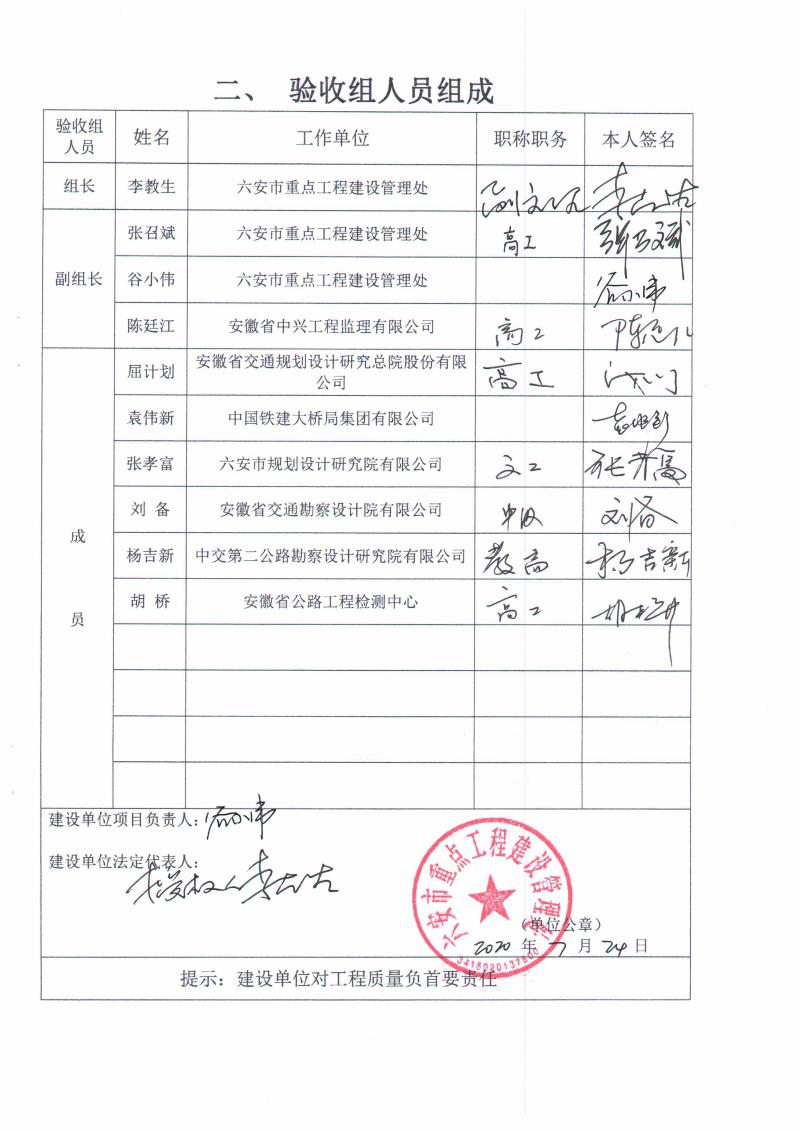 二、 验收组人员组成
验收组人员 姓名 工作单位 职称职务 本人签名
组长 李教生 六安市重点工程建设管理处
副组长 张召斌 六安市重点工程建设管理处 高工
谷小伟 六安市重点工程建设管理处 谷小伟
陈廷江 安徽省中兴工程监理有限公司 高工
成员 屈计划 安徽省交通规划设计研究总院股份有限公司 高工
袁伟新 中国铁建大桥局集团有限公司
张孝富 六安市规划设计研究院有限公司 张孝富
刘 备 安徽省交通勘察设计院有限公司 中级 刘备
杨吉新 中交第二公路勘察设计研究院有限公司 教高 杨吉新
胡 桥 安徽省公路工程检测中心 高工
建设单位项目负责人：谷小伟
建设单位法定代表人：
六安市重点工程建设管理处
（单位公章）
2020 年 7 月 24 日
3415020137600
提示：建设单位对工程质量负首要责任